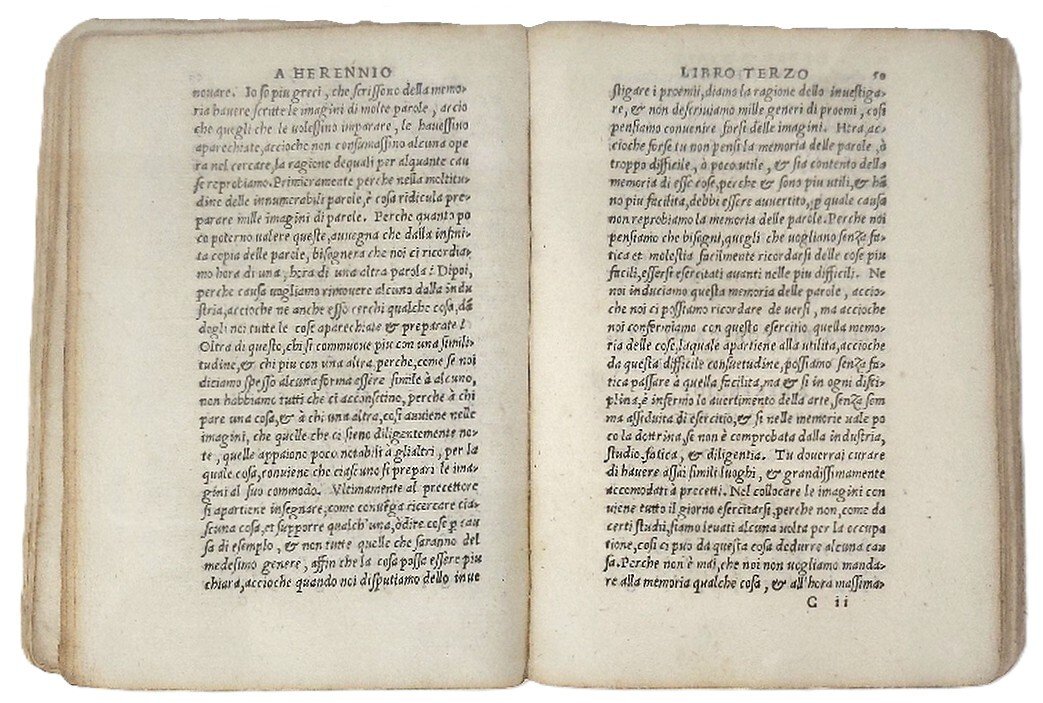 A HERENNIO
nouare. Io so piu greci, che scrissono della memo-
ria hauere scritte le imagini di molte parole, accio
che quegli che le uolessino imparare, le hauessino
aparechiate, accioche non consumassino alcuna ope
ra nel cercare, la ragione dequali per alquante cau
se reprobiamo. Primieramente perche nella moltitu-
dine delle innumerabili parole, è cosa ridicula pre-
parare mille imagini di parole. Perche quanto po
co poterno ualere queste, auegna che dalla infini-
ta copia delle parole, bisognera che noi ci ricordia-
mo hora di una, hora di una altra parola? Dipoi,
perche causa uogliamo rimouere alcuno dalla indu
stria, accioche ne anche esso cerchi qualche cosa, dā
dogli noi tutte le cose aparechiate & preparate?
Oltra di questo, chi si commuoue piu con una simili-
tudine, & chi piu con una altra, perche, come se noi
diciamo spesso alcuna forma essere simile à alcuno,
non habbiamo tutti che ci acconsetino, perche à chi
pare una cosa, & à chi una altra, cosi auuiene nelle
imagini, che quelle che ci sieno diligentemente no-
te, quelle appaiono poco notabili à glialtri, per la
quale cosa, conuiene che ciascuno si prepari le ima-
gini al suo commodo. Vltimamente al precettore
si apartiene insegnare, come conuēga ricercare cia-
scuna cosa, et supporre qualch'una, ò dire cose ꝑ cau
sa di esempio, & non tutte quelle che saranno del
medesimo genere, affin che la cosa possa essere piu
chiara, accioche quando noi disputiamo dello inue
LIBRO TERZO 50
stigare i proemii, diamo la ragione dello inuestiga-
re, & non descriuiamo mille generi di proemi, cosi
pensiamo conuenire farsi delle imagini. Hora, ac-
cioche forse tu non pensi la memoria delle parole, ò
troppo difficile, ò poco utile, & sia contento della
memoria di esse cose, perche & sono piu utili, & hā
no piu facilita, debbi essere auuertito, ꝑ quale causa
non reprobiamo la memoria delle parole. Perche noi
pensiamo che bisogni, quegli che uogliano senza fa-
tica et molestia facilmente ricordarsi delle cose piu
facili, essersi esercitati auanti nelle piu difficili. Ne
noi induciamo questa memoria delle parole, accio-
che noi ci possiamo ricordare de uersi, ma accioche
noi confermiamo con questo esercitio quella memo-
ria delle cose, laquale apartiene alla utilita, accioche
da questa difficile consuetudine, possiamo senza fa-
tica passare à quella facilita, ma & si in ogni disci-
plina, è infermo lo auertimento della arte, senza som
ma assiduita di esercitio, & si nelle memorie uale po
co la dottrina, se non è comprobata dalla industria,
studio, fatica, & diligentia. Tu douerrai curare
di hauere assai simili luoghi, & grandissimamente
accomodati à precetti. Nel collocare le imagini con
uiene tutto il giorno esercitarsi, perche non, come da
certi studi, siamo leuati alcuna uolta per la occupa
tione, cosi ci puo da questa cosa dedurre alcuna cau
sa. Perche non è mai, che noi non uogliamo manda-
re alla memoria qualche cosa, & all'hora massima-
G ii